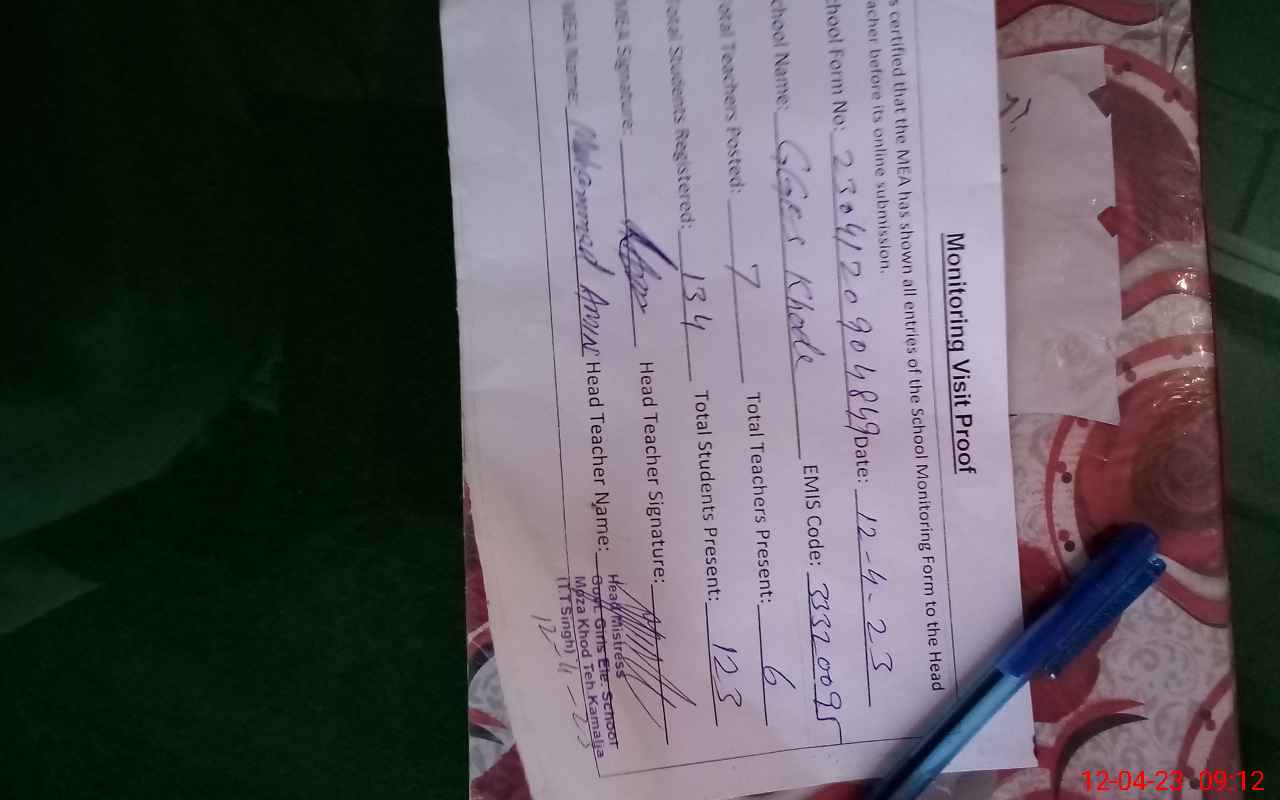 Monitoring Visit Proof
s certified that the MEA has shown all entries of the School Monitoring Form to the Head
acher before its online submission.
chool Form No: 2304120904849 Date: 12-4-23
chool Name: GGES Khode EMIS Code: 33320095
otal Teachers Posted: 7 Total Teachers Present: 6
Total Students Registered: 134 Total Students Present: 123
MEA Signature: Head Teacher Signature:
MEA Name: Muhammad Amin Head Teacher Name:
Head Mistress
Govt. Girls Ele. School
Moza Khod Teh.Kamalia
(T.T Singh)
12-4-23
12-04-23 09:12